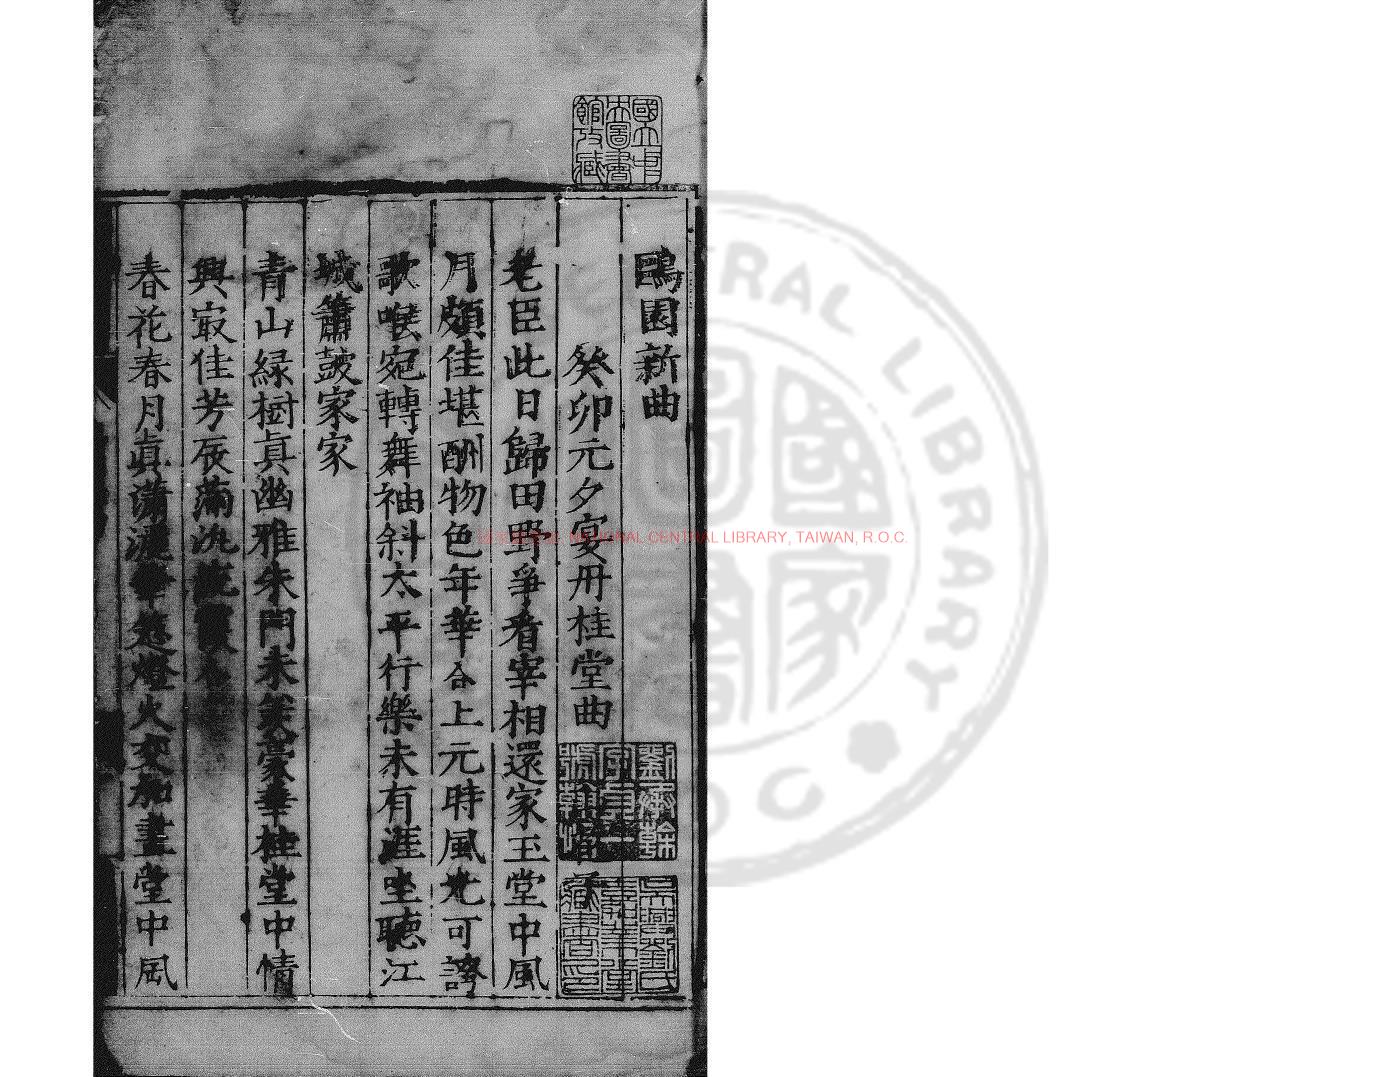 鷗園新曲
癸卯元夕宴丹桂堂曲
老臣此日歸田野爭看宰相還家玉堂中風
月頗佳堪酬物色年華合上元時風光可誇
歌喉宛轉舞袖斜太平行樂未有涯坐聽江
城簫鼓家家
青山緑樹真幽雅朱門未羨豪華桂堂中情
興冣佳芳辰滿泛流霞
春花春月真瀟灑華筵燈火交加畫堂中風
國立中央圖書館收藏
劉承榦字貞一號翰怡
吳興劉氏嘉業堂藏書印
NATIONAL CENTRAL LIBRARY, TAIWAN, R.O.C.
RAL LIBRARY